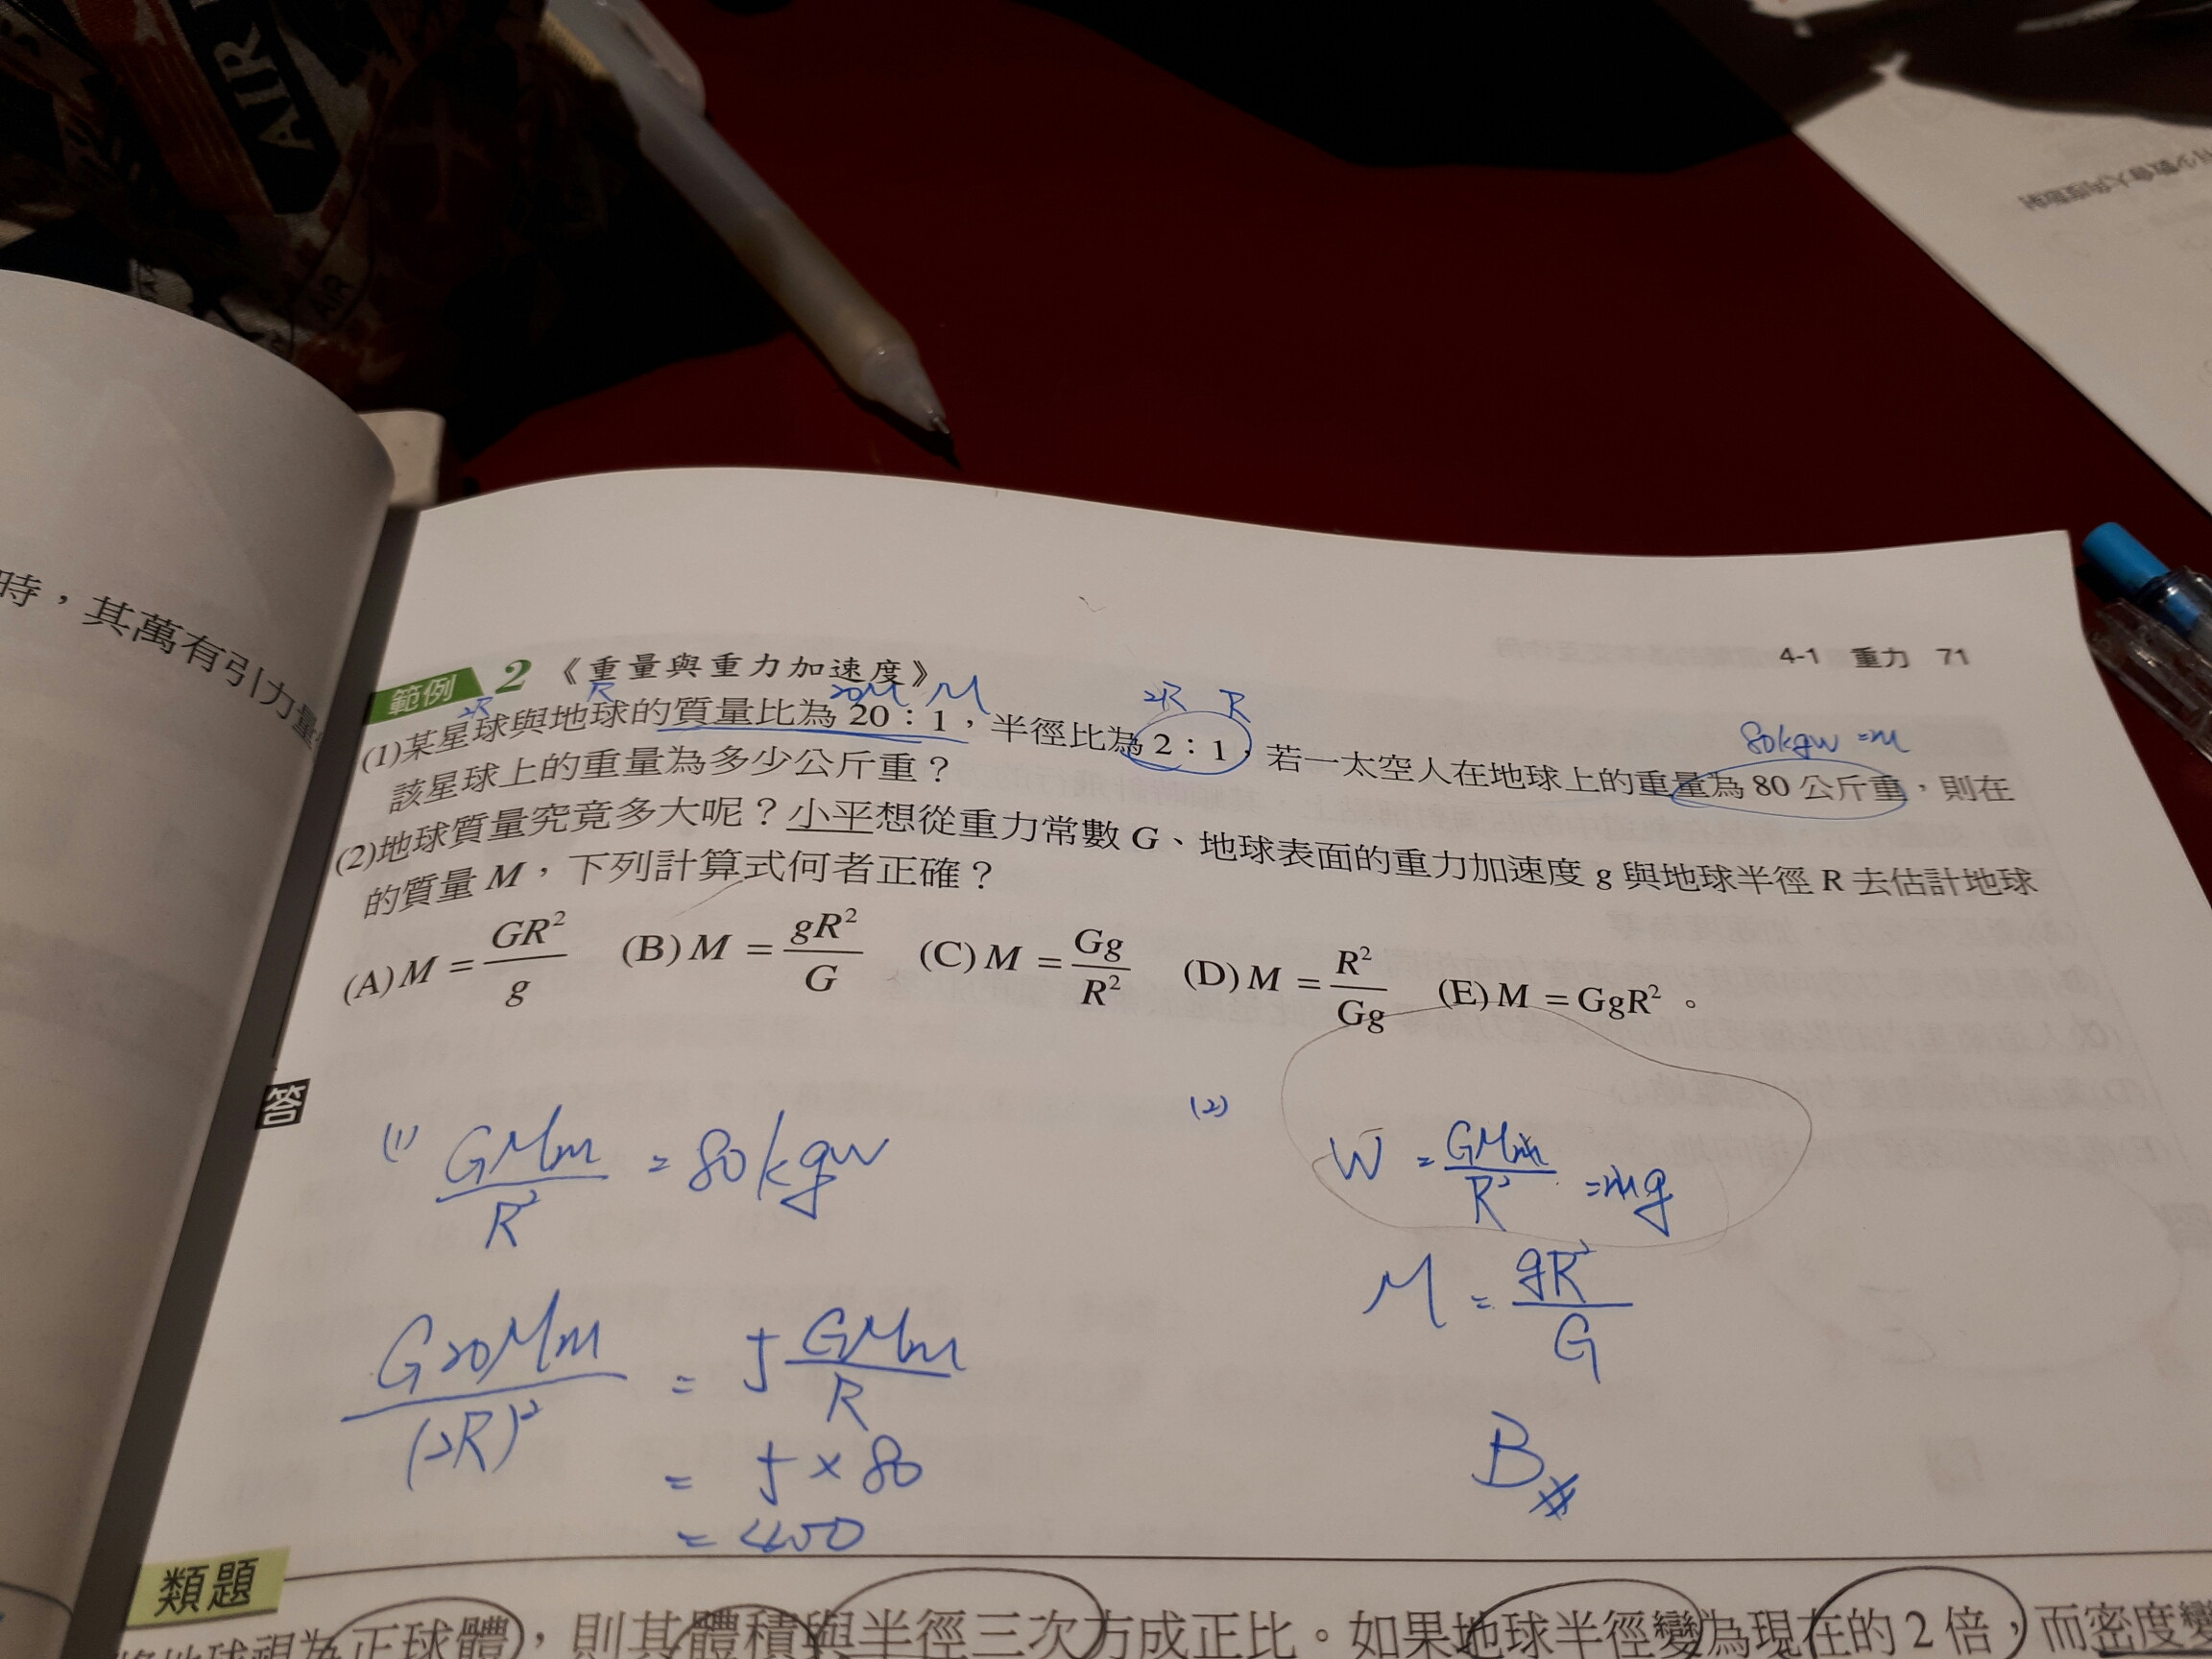 AIR
AIR
時，其萬有引力量
4-1 重力 71
範例 2 《重量與重力加速度》
2R R 20M M 2R R
(1)某星球與地球的質量比為 20：1，半徑比為 2：1，若一太空人在地球上的重量為 80 公斤重，則在
80kgw =m
該星球上的重量為多少公斤重？
(2)地球質量究竟多大呢？小平想從重力常數 G、地球表面的重力加速度 g 與地球半徑 R 去估計地球
的質量 M，下列計算式何者正確？
(A) M = GR²/g (B) M = gR²/G (C) M = Gg/R² (D) M = R²/Gg (E) M = GgR² 。
答
(1) GMm/R² = 80kgw
G20Mm/(2R)² = 5 GMm/R
= 5 × 80
= 400
(2) W = GMm/R² = mg
M = gR²/G
B#
類題
地球視為正球體，則其體積與半徑三次方成正比。如果地球半徑變為現在的 2 倍，而密度變